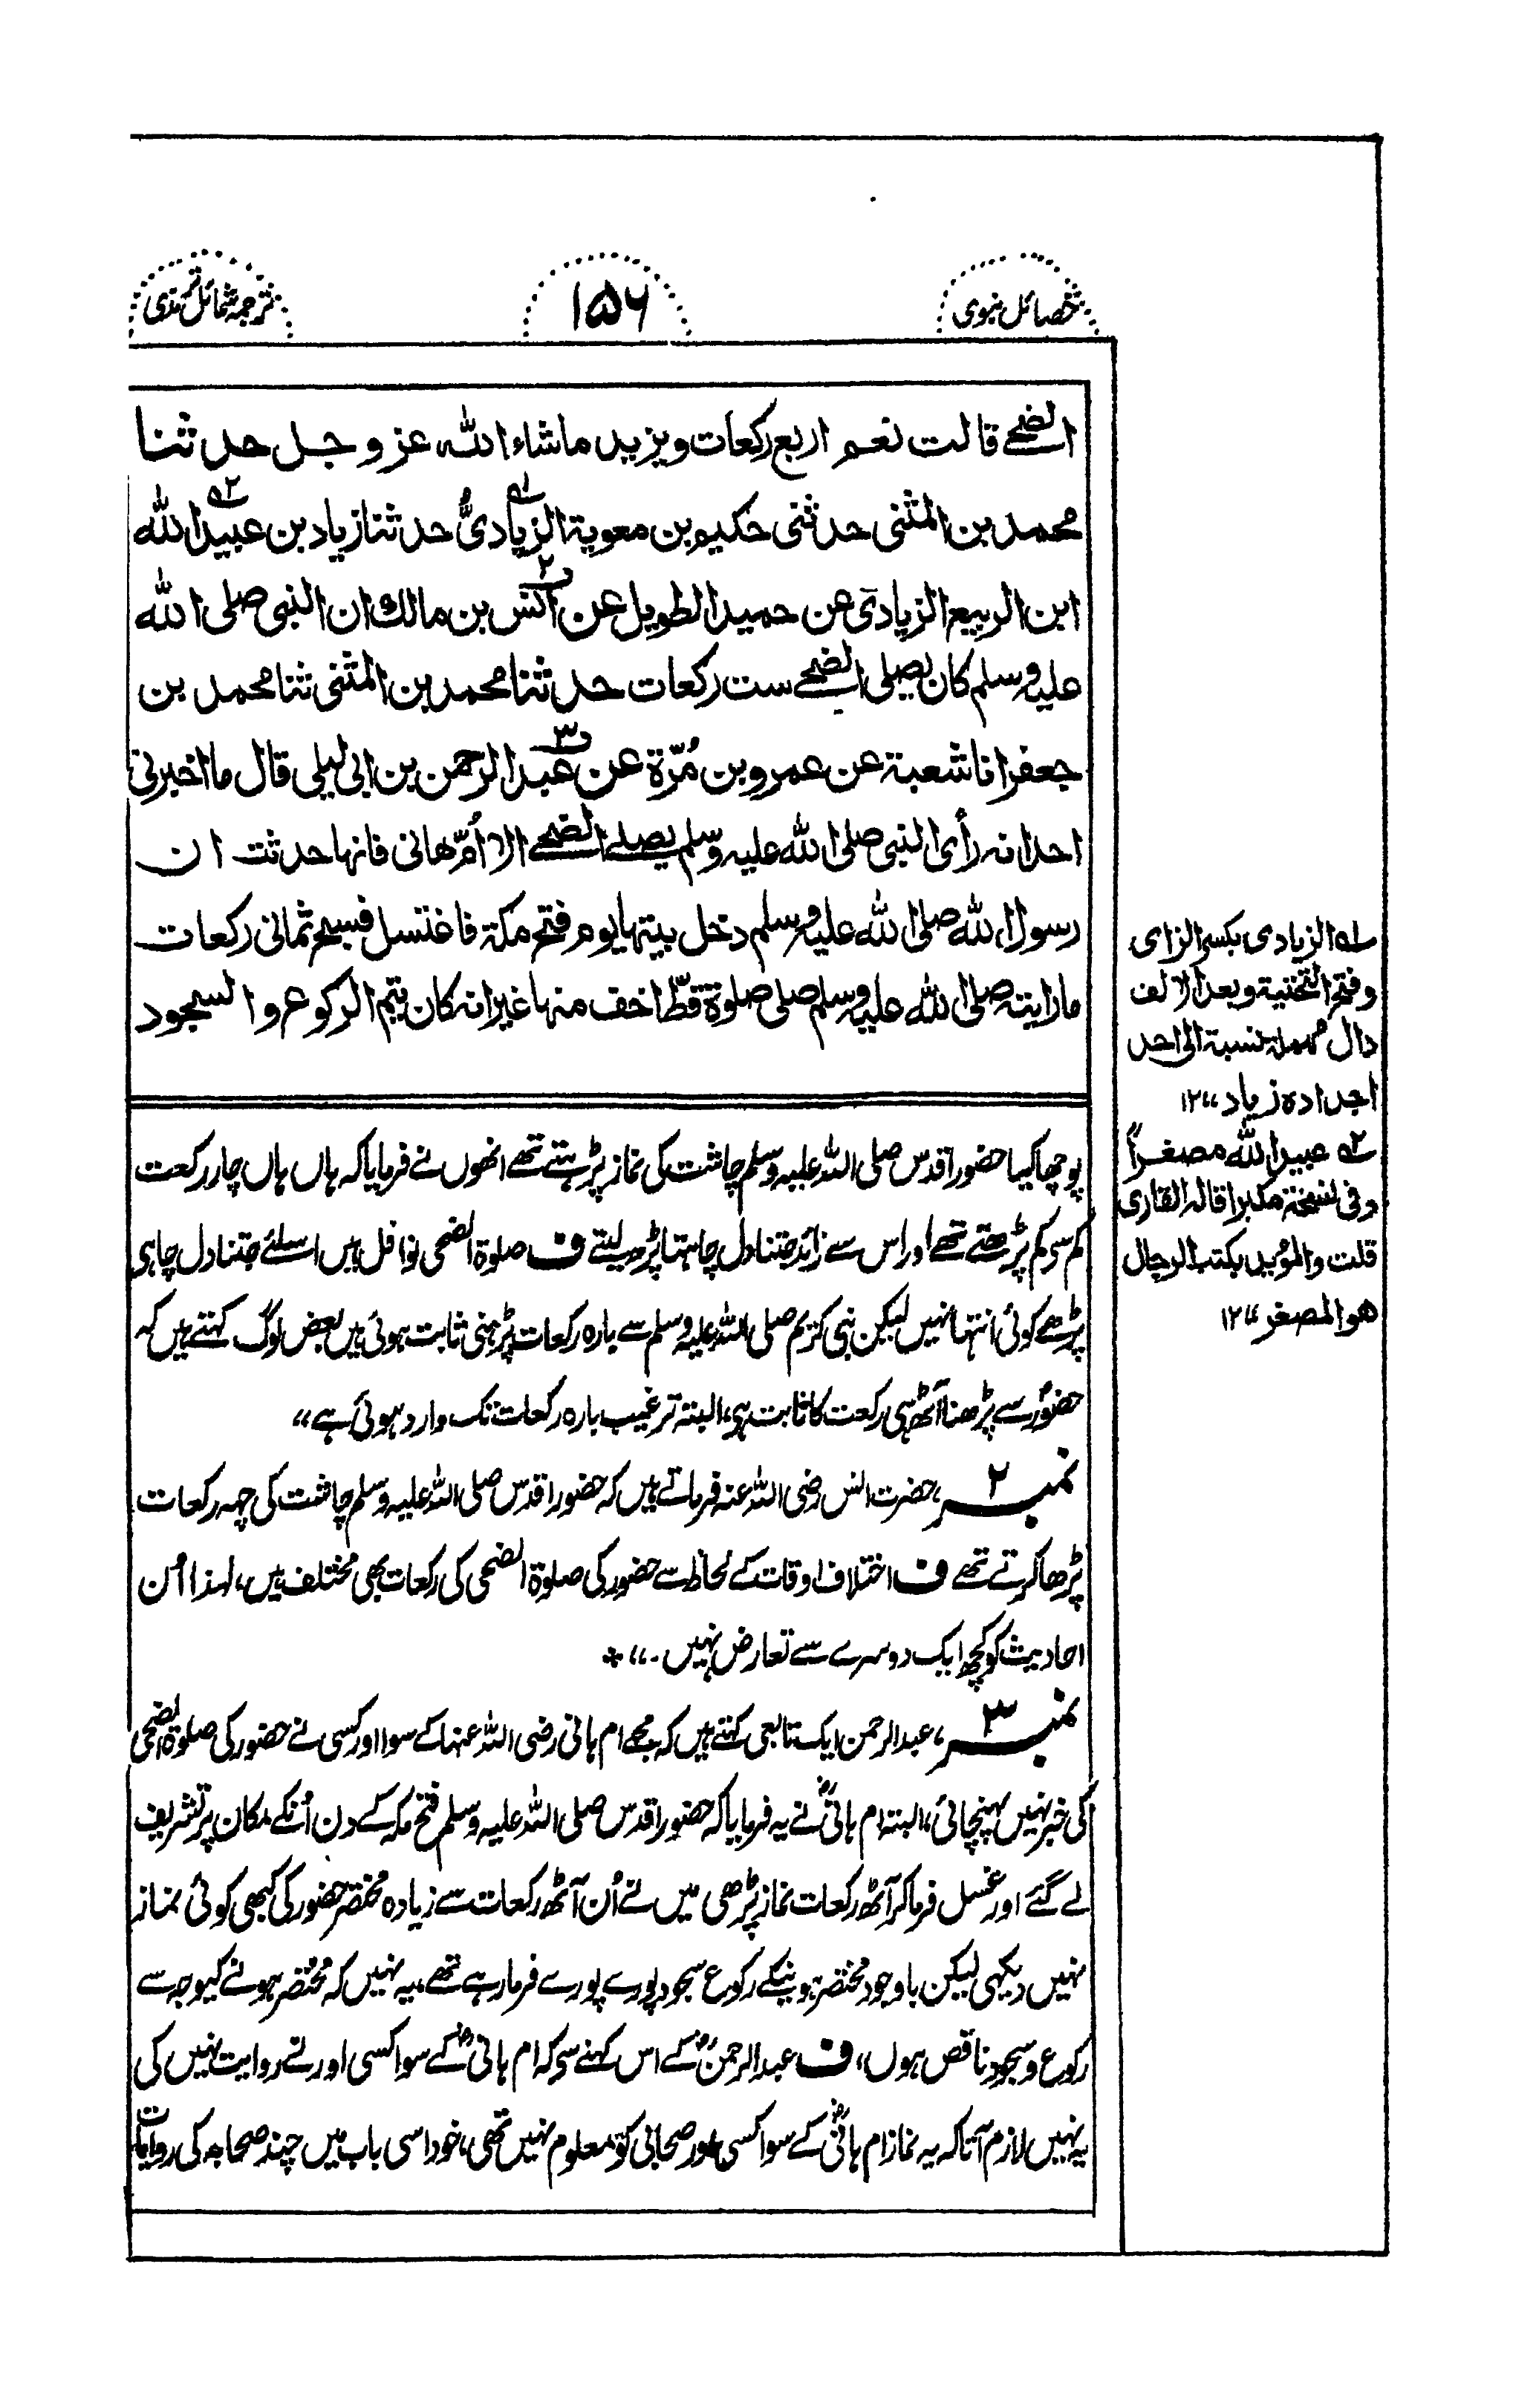 خصائل نبوی
۱۵۶
ترجمہ شمائل ترمذی
الضحے قالت نعم اربع رکعات ویزید ماشاء اللہ عز وجل حدثنا
محمد بن المثنی حدثنی حکیم بن معویۃ الزیادیُّ حدثنا زیاد بن عبید اللہ
ابن الربیع الزیادی عن حمید الطویل عن انس بن مالك ان النبی صلی اللہ
علیہ وسلم کان یصلی الضحے ست رکعات حدثنا محمد بن المثنی ثنا محمد بن
جعفر انا شعبۃ عن عمرو بن مُرّۃ عن عبد الرحمن بن ابی لیلی قال ما اخبرنی
احد انہ رأی النبی صلی اللہ علیہ وسلم یصلے الضحے الا اُمّ ھانی فانہا حدثت ان
رسول اللہ صلی اللہ علیہ وسلم دخل بیتہا یوم فتح مکۃ فاغتسل فسبح ثمانی رکعات
مارایتہ صلی اللہ علیہ وسلم صلی صلوۃ قطّ اخف منہا غیر انہ کان یتم الرکوع والسجود
پوچھا کیا حضور اقدس صلی اللہ علیہ وسلم چاشت کی نماز پڑہتے تھے انھوں نے فرمایا کہ ہاں ہاں چار رکعت
کم سی کم پڑھتے تھے اور اس سے زائد جتنا دل چاہتا پڑھ لیتے ف صلوۃ الضحی نوافل ہیں اسلئے جتنا دل چاہی
پڑھے کوئی انتہا نہیں لیکن نبی کریم صلی اللہ علیہ وسلم سے بارہ رکعات پڑہنی ثابت ہوئی ہیں بعض لوگ کہتے ہیں کہ
حضورؐ سے پڑھنا آٹھ ہی رکعت کا ثابت ہی، البتہ ترغیب بارہ رکعات تک وارد ہوئی ہے ،،
نمبر ۲، حضرت انس رضی اللہ عنہ فرماتے ہیں کہ حضور اقدس صلی اللہ علیہ وسلم چاشت کی چہہ رکعات
پڑھا کرتے تھے ف اختلاف اوقات کے لحاظ سے حضور کی صلوۃ الضحی کی رکعات بھی مختلف ہیں، لہذا اُن
احادیث کو کچھ ایک دوسرے سے تعارض نہیں۔،، *
نمبر ۳، عبد الرحمن ایک تابعی کہتے ہیں کہ مجھے ام ہانی رضی اللہ عنہا کے سوا اور کسی نے حضور کی صلوۃ الضحی
کی خبر نہیں پہنچائی، البتہ ام ہانیؓ نے یہ فرمایا کہ حضور اقدس صلی اللہ علیہ وسلم فتح مکہ کے دن اُنکے مکان پر تشریف
لے گئے اور غسل فرما کر آٹھ رکعات نماز پڑھی میں نے اُن آٹھ رکعات سے زیادہ مختصر حضور کی کبھی کوئی نماز
نہیں دیکہی لیکن باوجود مختصر ہونیکے رکوع سجود پورے پورے فرما رہے تھے، یہ نہیں کہ مختصر ہونے کیوجہ سے
رکوع وسجود ناقص ہوں، ف عبد الرحمنؒ کے اس کہنے سی کہ ام ہانیؓ کے سوا کسی اور نے روایت نہیں کی
یہ نہیں لازم آتا کہ یہ نماز ام ہانیؓ کے سوا کسی اور صحابی کو معلوم نہیں تھی، خود اسی باب میں چند صحابہ کی روایات
۱؎ الزیادی بکسر الزای
وفتح التحتیۃ وبعد الالف
دال مہملۃ نسبۃ الی احد
اجدادہ زیاد ۱۲،،
۲؎ عبید اللہ مصغراً
وفی نسخۃ مکبرا قالہ القاری
قلت والمؤید بکتب الرجال
ھو المصغر ۱۲،،